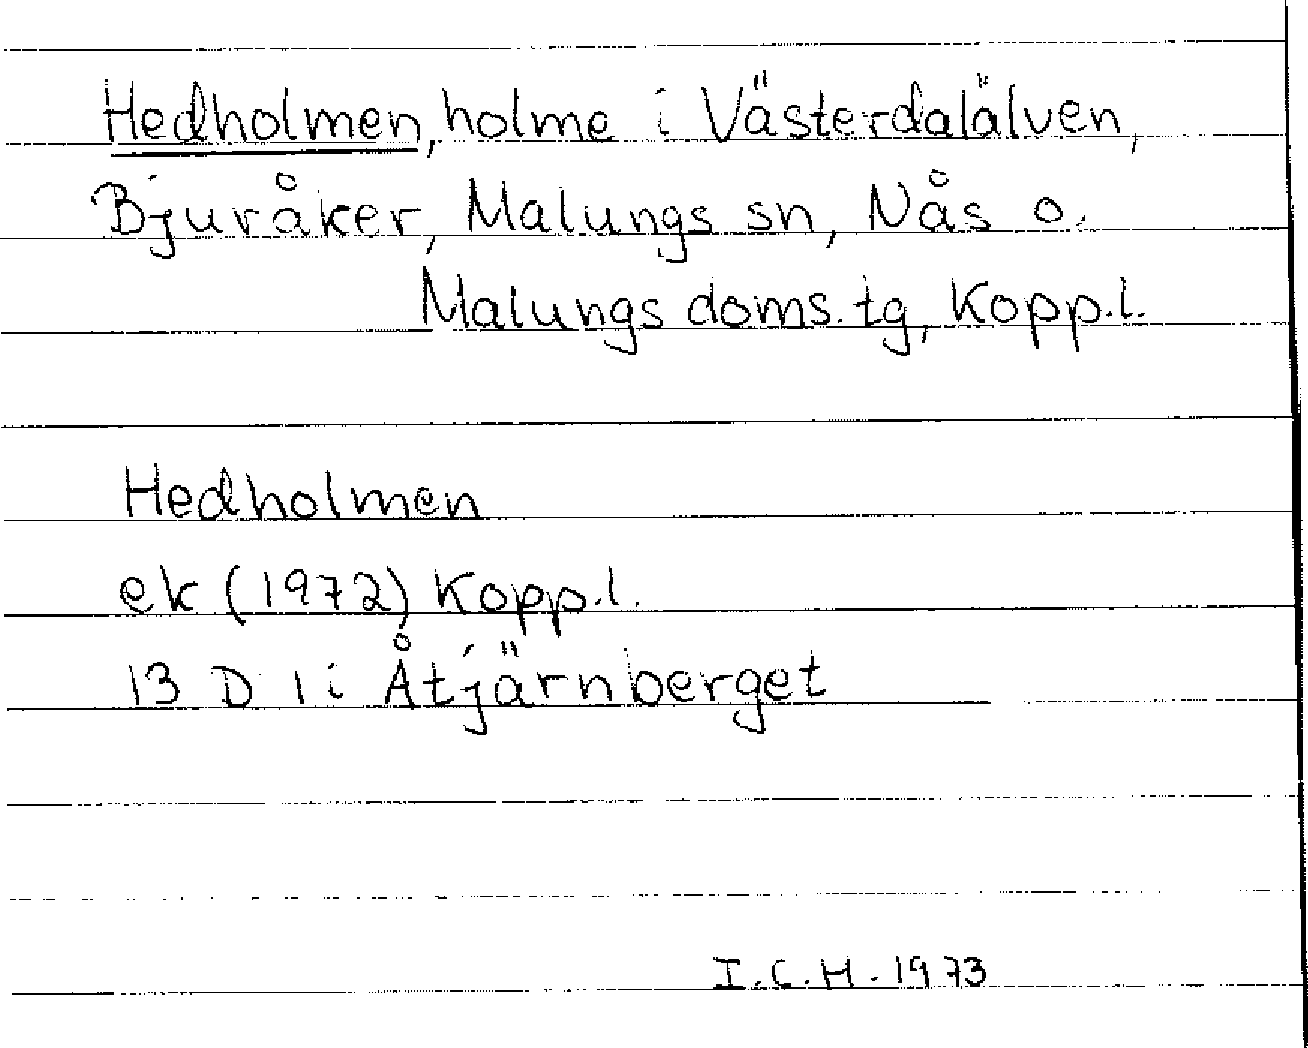 Hedholmen, holme i Västerdalälven,
Bjuråker, Malungs sn, Nås o.
Malungs doms.tg, Kopp.l.
Hedholmen
ek (1972) Kopp.l.
13 D 1 i Åtjärnberget
I.C.H. 1973